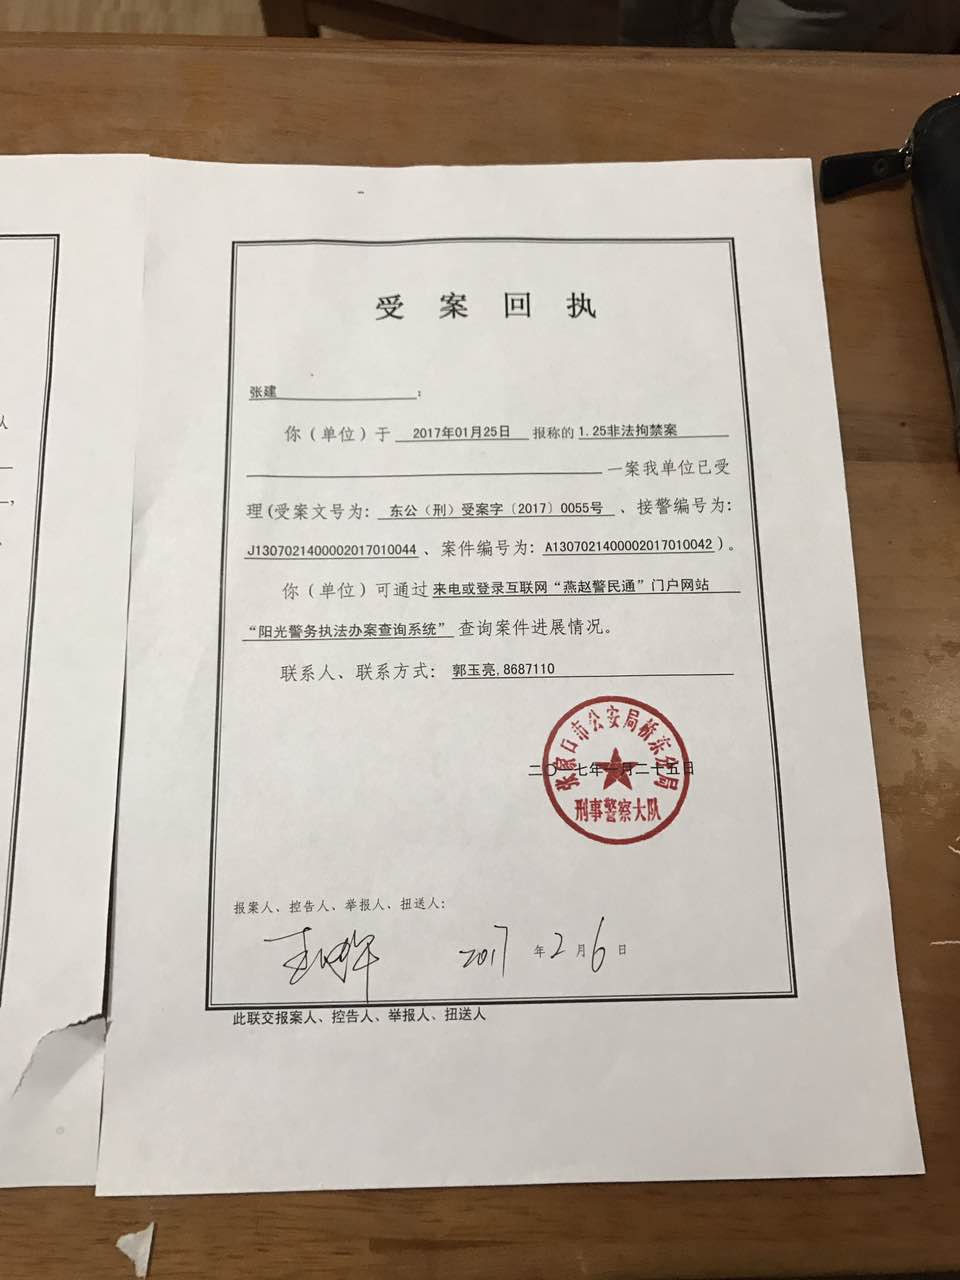 受案回执
张建:
你(单位)于 2017年01月25日 报称的 1.25非法拘禁案
一案我单位已受
理(受案文号为: 东公(刑)受案字〔2017〕0055号、接警编号为:
J1307021400002017010044、案件编号为: A1307021400002017010042)。
你(单位)可通过 来电或登录互联网“燕赵警民通”门户网站
“阳光警务执法办案查询系统” 查询案件进展情况。
联系人、联系方式: 郭玉亮,8687110
张家口市公安局桥东分局
二〇一七年一月二十五日
刑事警察大队
报案人、控告人、举报人、扭送人:
2017年2月6日
此联交报案人、控告人、举报人、扭送人